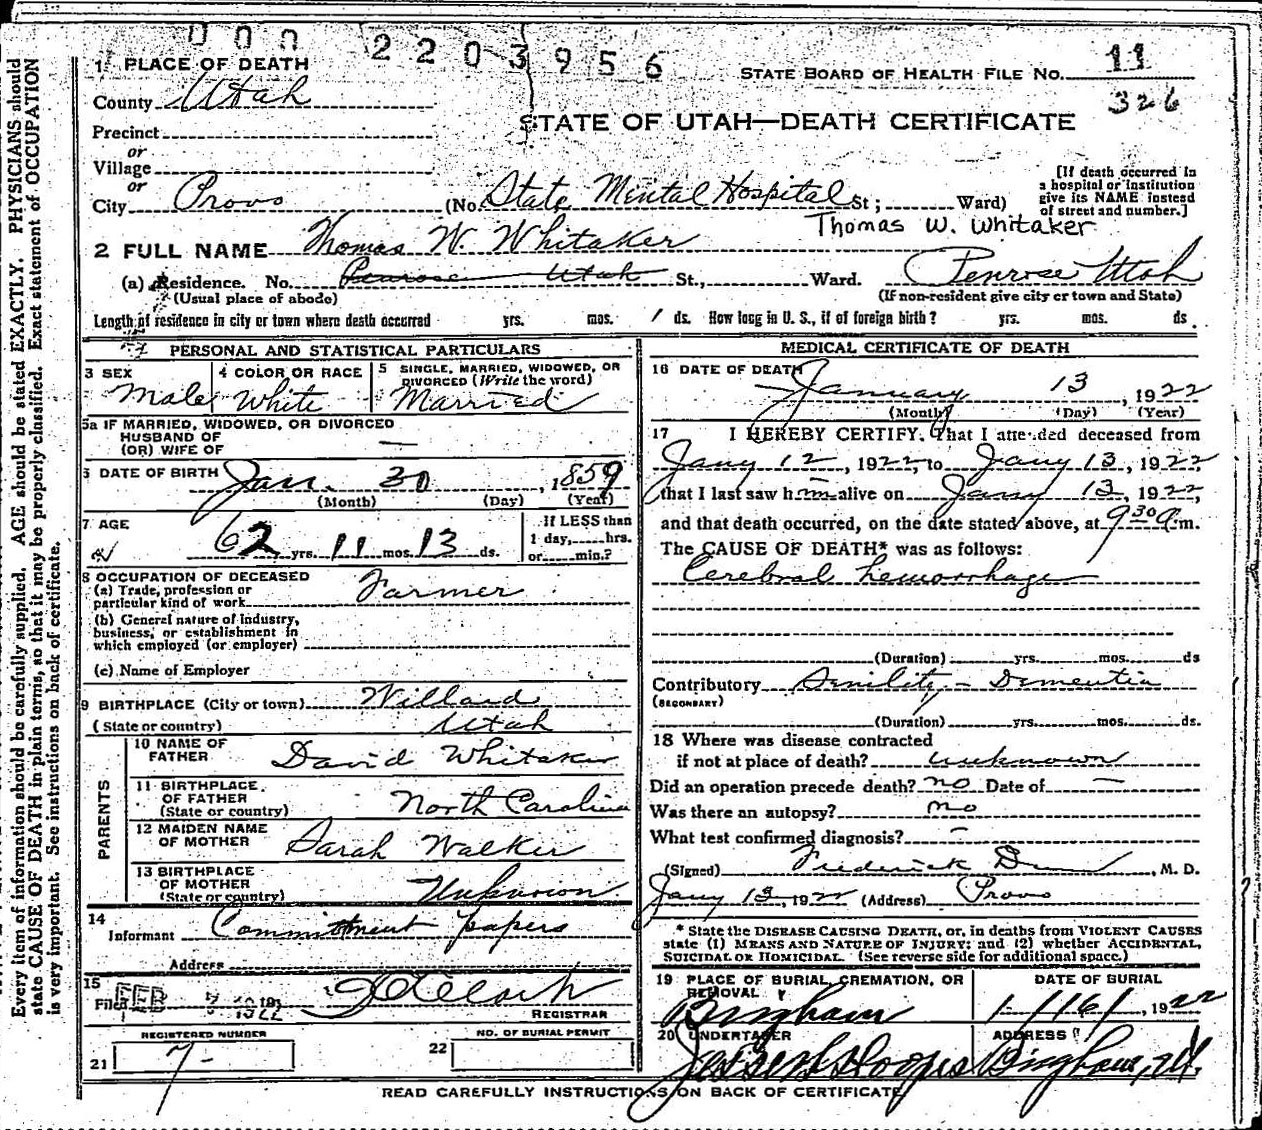 000 2203956
STATE BOARD OF HEALTH FILE NO. 11
326
STATE OF UTAH—DEATH CERTIFICATE
1 PLACE OF DEATH
County Utah
Precinct
or
Village
or
City Provo (No. State Mental Hospital St; Ward)
[If death occurred in
a hospital or institution
give its NAME instead
of street and number.]
Thomas W. Whitaker
2 FULL NAME Thomas W. Whitaker
(a) Residence. No. Penrose Utah St., Ward. Penrose Utah
(Usual place of abode) (If non-resident give city or town and State)
Length of residence in city or town where death occurred yrs. mos. 1 ds. How long in U. S., if of foreign birth? yrs. mos. ds.
PERSONAL AND STATISTICAL PARTICULARS
3 SEX
Male
4 COLOR OR RACE
White
5 SINGLE, MARRIED, WIDOWED, OR
DIVORCED (Write the word)
Married
5a IF MARRIED, WIDOWED, OR DIVORCED
HUSBAND OF
(OR) WIFE OF —
6 DATE OF BIRTH Jan. 30, 1859
(Month) (Day) (Year)
7 AGE
62 yrs. 11 mos. 13 ds.
If LESS than
1 day, hrs.
or min.?
8 OCCUPATION OF DECEASED
(a) Trade, profession or
particular kind of work Farmer
(b) General nature of industry,
business, or establishment in
which employed (or employer)
(c) Name of Employer
9 BIRTHPLACE (City or town) Willard
(State or country) Utah
PARENTS
10 NAME OF
FATHER David Whitaker
11 BIRTHPLACE
OF FATHER
(State or country) North Carolina
12 MAIDEN NAME
OF MOTHER Sarah Walker
13 BIRTHPLACE
OF MOTHER
(State or country) Unknown
14
Informant Commitment papers
Address
15
Filed FEB 7 1922 19
REGISTRAR
REGISTERED NUMBER
21 7-
NO. OF BURIAL PERMIT
22
MEDICAL CERTIFICATE OF DEATH
16 DATE OF DEATH
January 13, 1922
(Month) (Day) (Year)
17 I HEREBY CERTIFY, That I attended deceased from
Jany 12, 1922, to Jany 13, 1922
that I last saw him alive on Jany 13, 1922,
and that death occurred, on the date stated above, at 9 30 a.m.
The CAUSE OF DEATH* was as follows:
Cerebral hemorrhage
(Duration) yrs. mos. ds
Contributory Senility - Dementia
(SECONDARY)
(Duration) yrs. mos. ds.
18 Where was disease contracted
if not at place of death? unknown
Did an operation precede death? no Date of —
Was there an autopsy? no
What test confirmed diagnosis? —
(Signed) Frederick, M. D.
Jany 13, 1922 (Address) Provo
* State the DISEASE CAUSING DEATH, or, in deaths from VIOLENT CAUSES
state (1) MEANS AND NATURE OF INJURY; and (2) whether ACCIDENTAL,
SUICIDAL OR HOMICIDAL. (See reverse side for additional space.)
19 PLACE OF BURIAL, CREMATION, OR
REMOVAL
Bingham
DATE OF BURIAL
1-/16/, 1922
20 UNDERTAKER
ADDRESS
Bingham, Ut.
READ CAREFULLY INSTRUCTIONS ON BACK OF CERTIFICATE
Every item of information should be carefully supplied. AGE should be stated EXACTLY. PHYSICIANS should
state CAUSE OF DEATH in plain terms, so that it may be properly classified. Exact statement of OCCUPATION
is very important. See instructions on back of certificate.